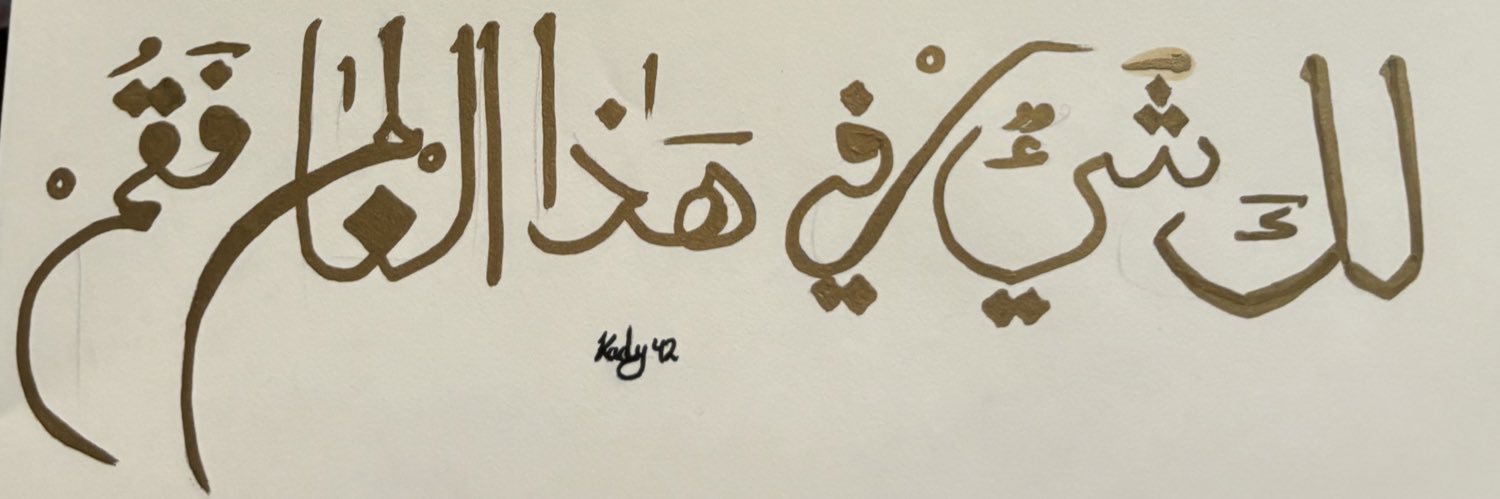 لكَ شَيْءٌ فِي هَٰذَا العَالَم فَقُمْ
Kady 42